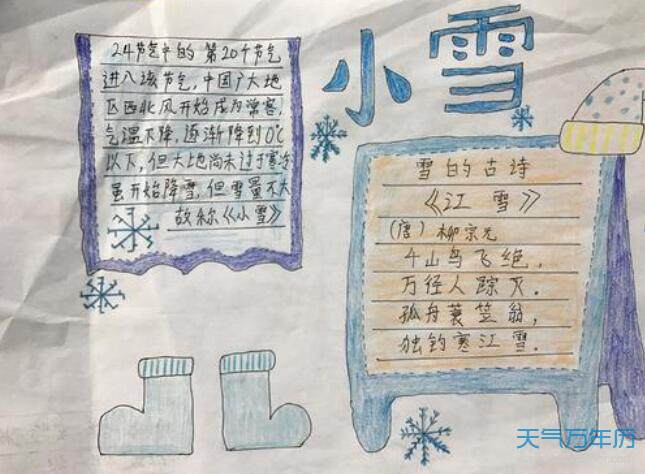 小雪
24节气中的第20个节气
进入该节气，中国广大地
区西北风开始成为常客，
气温下降，逐渐降到0℃
以下，但大地尚未过于寒冷
虽开始降雪，但雪量不大
故称《小雪》
雪的古诗
《江雪》
（唐）柳宗元
千山鸟飞绝，
万径人踪灭。
孤舟蓑笠翁，
独钓寒江雪。
天气万年历